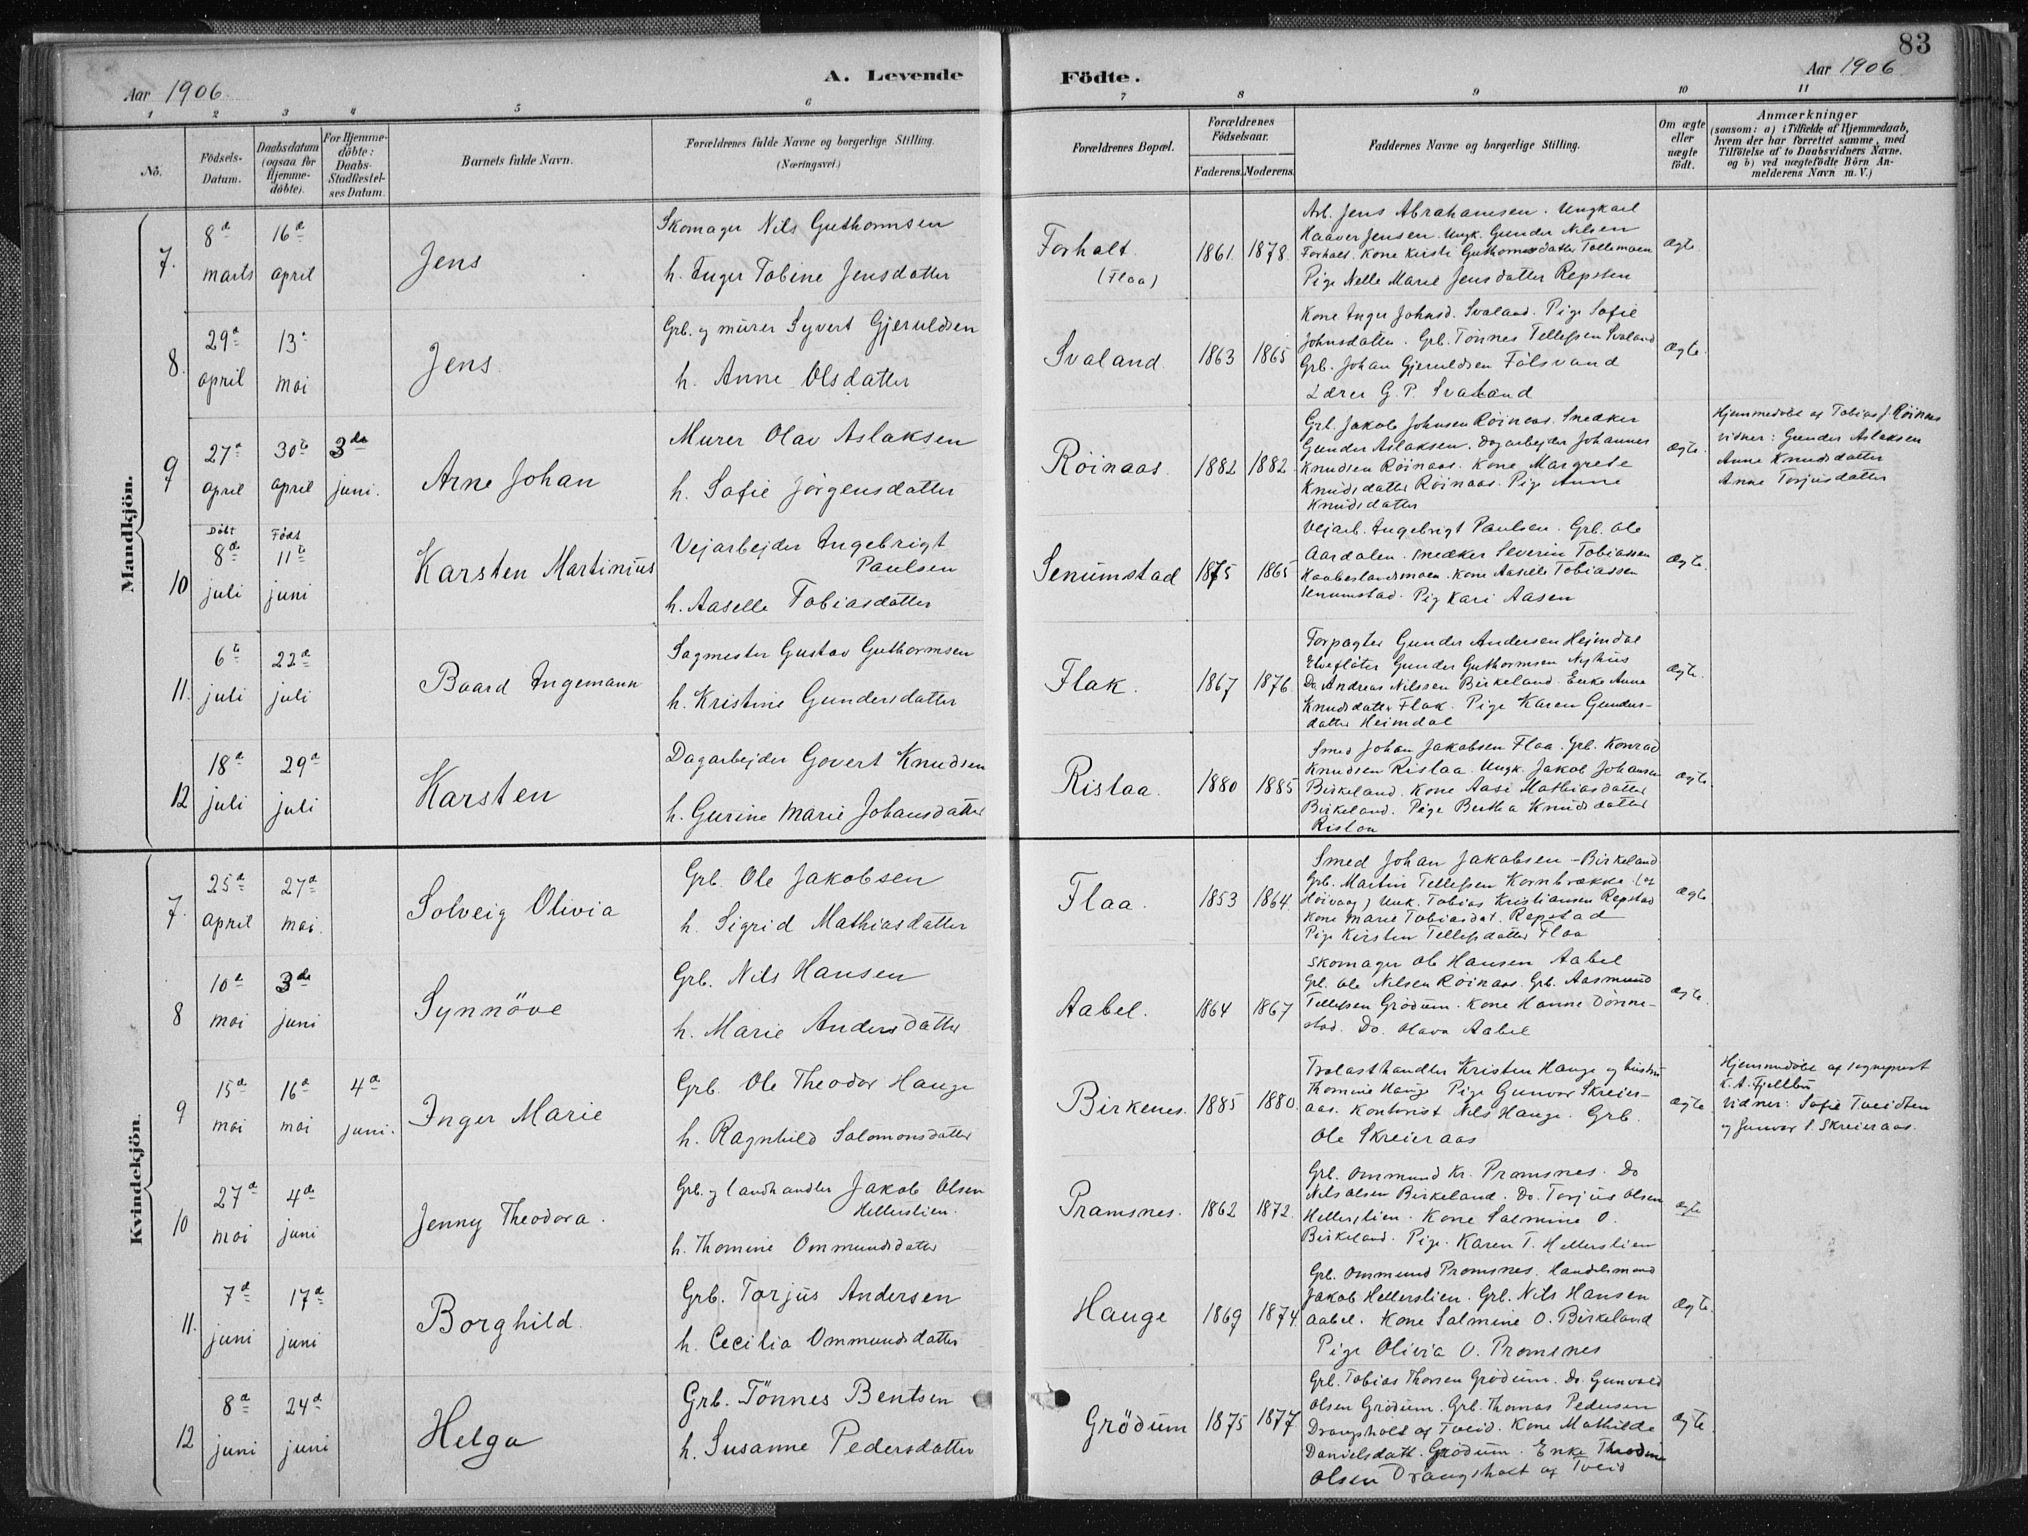 83
Aar 1906.
A. Levende
Födte.
Aar 1906
1 2 3 4 5 6 7 8 9 10 11
Nô.
Födsels-
Datum.
Daabsdatum
(ogsaa for
Hjemme-
döbte).
For Hjemme-
döbte:
Daabs-
Stadfæstel-
ses Datum.
Barnets fulde Navn.
Forældrenes fulde Navne og borgerlige Stilling.
(Næringsvei.)
Forældrenes Bopæl.
Forældrenes
Födselsaar.
Faderens. Moderens.
Faddernes Navne og borgerlige Stilling.
Om ægte
eller
uægte
født.
Anmærkninger
(saasom: a) i Tilfælde af Hjemmedaab,
hvem der har forrettet samme, med
Tilföielse af to Daabsvidners Navne.
og b) ved uægtefödte Börn An-
melderens Navn m. V.)
Mandkjön.
7.
8de marts
16de april
Jens
Skomager Nils Guthormsen
h. Inger Tobine Jensdatter
Forholt
(Flaa)
1861. 1878.
Arb. Jens Abrahamsen. Ungkarl
Haaver Jensen. Ungk. Gunder Nilsen
Forholt. Kone Kirsti Guthormsdatter Tollemoen
Pige Nelle Marie Jensdatter Repsten
ægte
8.
29de april
13. mai
Jens.
Grb. g murer Syvert Gjeruldsen
h. Anne Olsdatter
Svaland.
1863 1865
Kone Inger Johnsd. Svaland. Pige Sofie
Johnsdatter. Grb. Tönnes Tellefsen Svaland
Grb. Johan Gjeruldsen Fölsvand
Lærer G. P. Svaland
ægte.
9
27de april
30te april
3die juni.
Arne Johan
Murer Olav Aslaksen
h. Sofie Jörgensdatter
Röinaas.
1882 1882.
Grb. Jakob Johnsen Röinaas. Snedker
Gunder Aslaksen. Dagarbejder Johannes
Knudsen Röinaas. Kone Margrete
Knudsdatter Röinaas. Pige Anne
Knudsdatter
ægte.
Hjemmedøbt af Tobias J. Röinaas
vidner: Gunder Aslaksen
Anne Knudsdatter
Anne Torjusdatter
10
Döbt 8de juli
Födt 11te juni
Karsten Martinius
Vejarbejder Ingebrigt
Paulsen
h. Aaselle Tobiasdatter
Senumstad
1875 1865
Vejarb. Ingebrigt Paulsen. Grb. Ole
Aardalen. Snedker Severin Tobiassen
Haabeslandsmoen. Kone Aaselle Tobiassen
Senumstad. Pig Kari Aasen
ægte.
11.
6te juli
22de juli
Baard Ingemann
Sagmester Gustav Guthormsen
h. Kristine Gundersdatter
Flak.
1867 1876.
Forpagter Gunder Andersen Heimdal
Elvefløter Gunder Guthormsen Nyhus
Do. Andreas Nilssen Birkeland. Enke Anna
Knudsdatter Flak. Pige Karen Gunders-
datter Heimdal
ægte.
12
18de juli
29de juli
Karsten
Dagarbejder Govert Knudsen
h. Gurine Marie Johansdatter
Rislaa.
1880 1885
Smed Johan Jakobsen Flaa. Grb. Konrad
Knudsen Rislaa. Ungk. Jakob Johansen
Birkeland. Kone Aasi Mathiasdatter
Birkeland. Pige Bertha Knudsdatter
Rislaa
ægte.
Kvindekjön.
7.
25de april
27de mai.
Solveig Olivia
Grb. Ole Jakobsen
h. Sigrid Mathiasdatter
Flaa.
1853 1864.
Smed Johan Jakobsen - Birkeland
Grb. Martin Tellefsen Kornbrække (af
Höivaag) Unk. Tobias Kristiansen Repstad
Kone Marie Tobiasdat. Repstad
Pige Kirsten Tellefsdatter Flaa
ægte.
8
10de mai
3die juni
Synnöve
Grb. Nils Hansen
h. Marie Andersdatter
Aabel.
1864 1867
Skomager Ole Hansen Aabel
Grb. Ole Nilsen Röinaas. Grb. Aasmund
Tellefsen Grödum. Kone Hanne Dönne-
stad. Do. Olava Aabel
ægte.
9
15de mai
16de mai
4de juni.
Inger Marie
Grb. Ole Theodor Hauge
h. Ragnhild Salomonsdatter
Birkenes.
1885 1880.
Trælasthandler Kristen Hauge og hustru
Thomine Hauge Pige Gunvor Skreier-
aas. Kontorist Nils Hauge. Grb.
Ole Skreieraas
ægte.
Hjemmedøbt af sogneprest
K. A. Fjellbu
Vidner: Sofie Tveidten
og Gunvor S. Skreieraas.
10
27de mai
4de juni
Jenny Theodora.
Grb. g landhandler Jakob Olsen
Hellerslien.
h. Thomine Ommundsdatter
Pramsnes.
1862 1872.
Grb. Ommund Kr. Pramsnes. Do
Nils Olsen Birkeland. Do. Torjus Olsen
Hellerslien. Kone Salmine O.
Birkeland. Pige. Karen T. Hellerslien
ægte
11.
7de juni
17de juni
Borghild.
Grb. Torjüs Andersen
h. Cecilia Ommundsdatter
Hauge
1869 1874.
Grb. Ommund Pramsnes. Handelsmand
Jakob Hellerslien. Grb. Nils Hansen
Aabel. Kone Salmine O. Birkeland
Pige Olivia O. Pramsnes
ægte.
12
8de juni
24de juni
Helga
Grb. Tönnes Bentsen
h. Susanne Pedersdatter
Grödum
1875 1877
Grb. Tobias Thorsen Grödum. Do. Gunvald
Olsen Grödum. Grb. Thomas Pedersen
Drangsholt af Tveid. Kone Mathilde
Danielsdatt. Grödum. Enke
Olsen Drangsholt af Tveid
ægte.